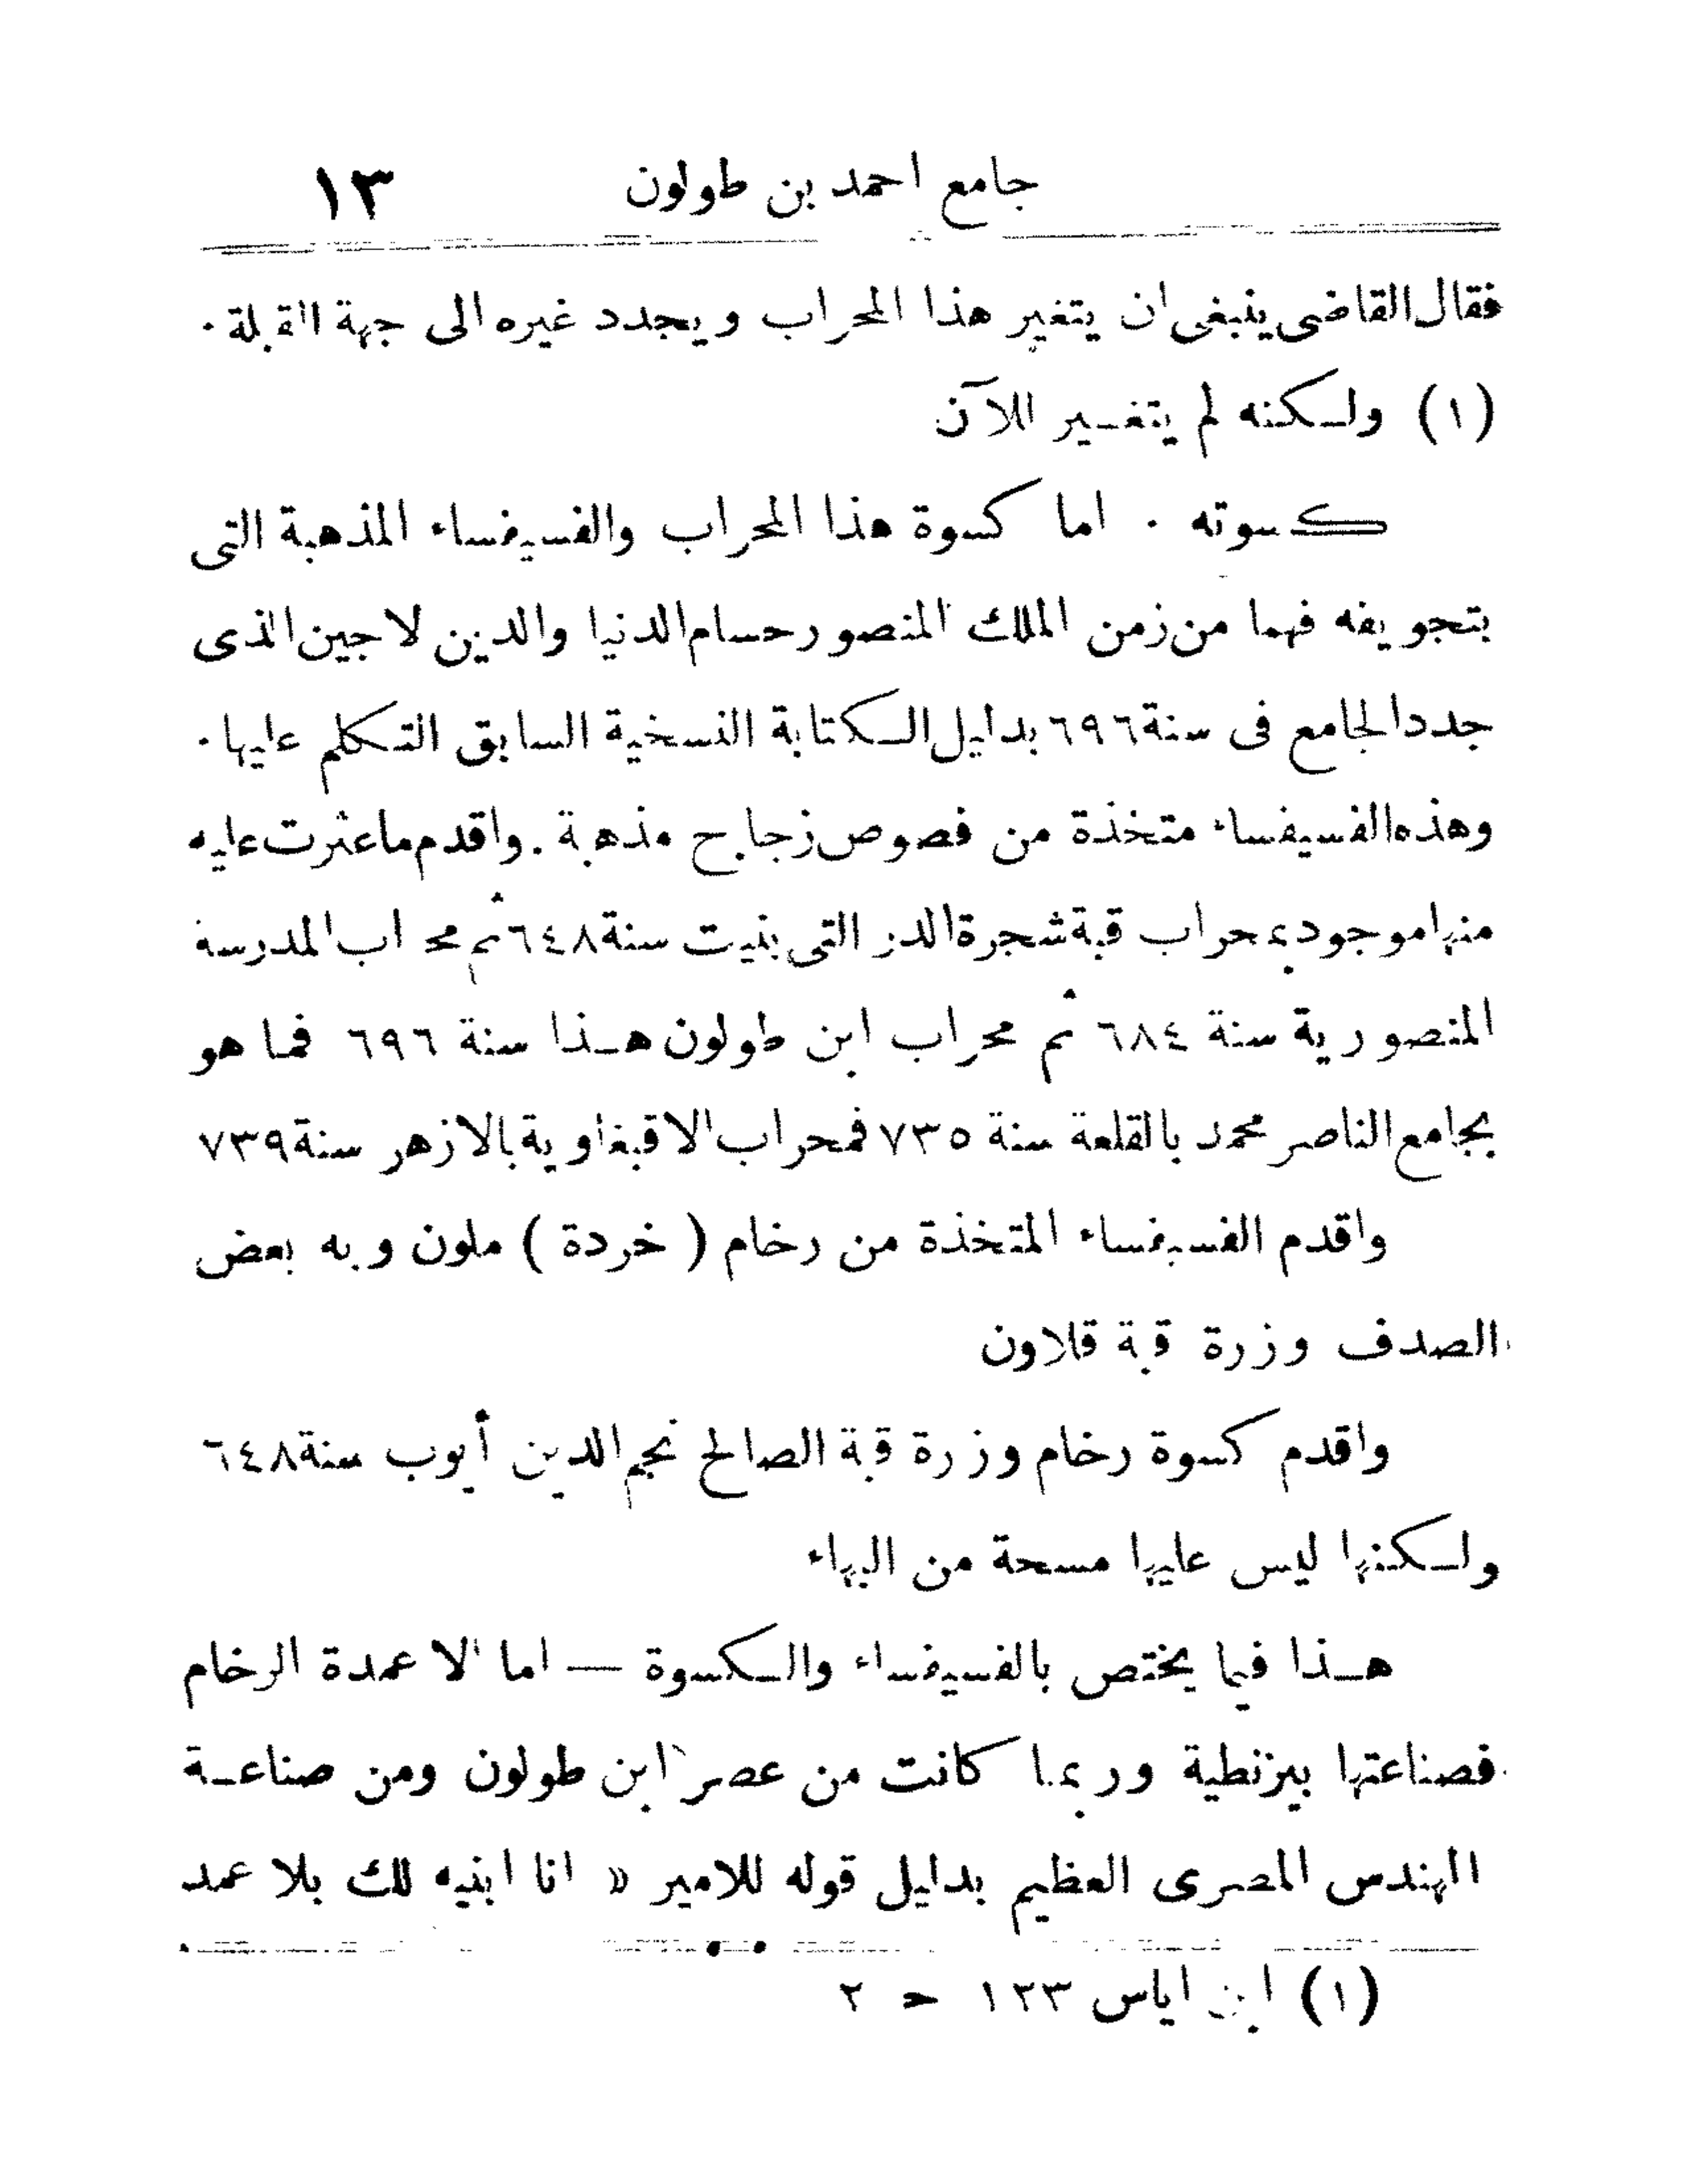 جامع احمد بن طولون ١٣
فقال القاضى ينبغى ان يتغير هذا المحراب ويجدد غيره الى جهة القبلة .
(١) ولكنه لم يتغير للآن
كسوته . اما كسوة هذا المحراب والفسيفساء المذهبة التى
بتجويفه فهما من زمن الملك المنصور حسام الدنيا والدين لاجين الذى
جدد الجامع فى سنة ٦٩٦ بدليل الكتابة النسخية السابق التكلم عليها .
وهذه الفسيفساء متخذة من فصوص زجاج مذهبة . واقدم ما عثرت عليه
منها موجود بمحراب قبة شجرة الدر التى بنيت سنة ٦٤٨ ثم محراب المدرسة
المنصورية سنة ٦٨٤ ثم محراب ابن طولون هذا سنة ٦٩٦ فما هو
بجامع الناصر محمد بالقلعة سنة ٧٣٥ فمحراب الاقبغاوية بالازهر سنة ٧٣٩
واقدم الفسيفساء المتخذة من رخام ( خردة ) ملون وبه بعض
الصدف وزرة قبة قلاون
واقدم كسوة رخام وزرة قبة الصالح نجم الدين أيوب سنة ٦٤٨
ولكنها ليس عليها مسحة من البهاء
هذا فيما يختص بالفسيفساء والكسوة — اما الاعمدة الرخام
فصناعتها بيزنطية وربما كانت من عصر ابن طولون ومن صناعة
المهندس المصرى العظيم بدليل قوله للامير « انا ابنيه لك بلا عمد
(١) ابن اياس ١٢٣ ح ٢